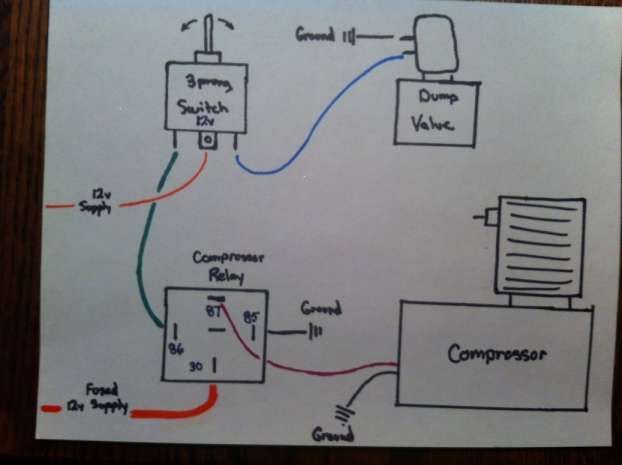 Ground
3 prong
Switch
12v
Dump
Valve
12v
Supply
Compressor
Relay
87
85
86
30
Ground
Compressor
Fused
12v Supply
Ground